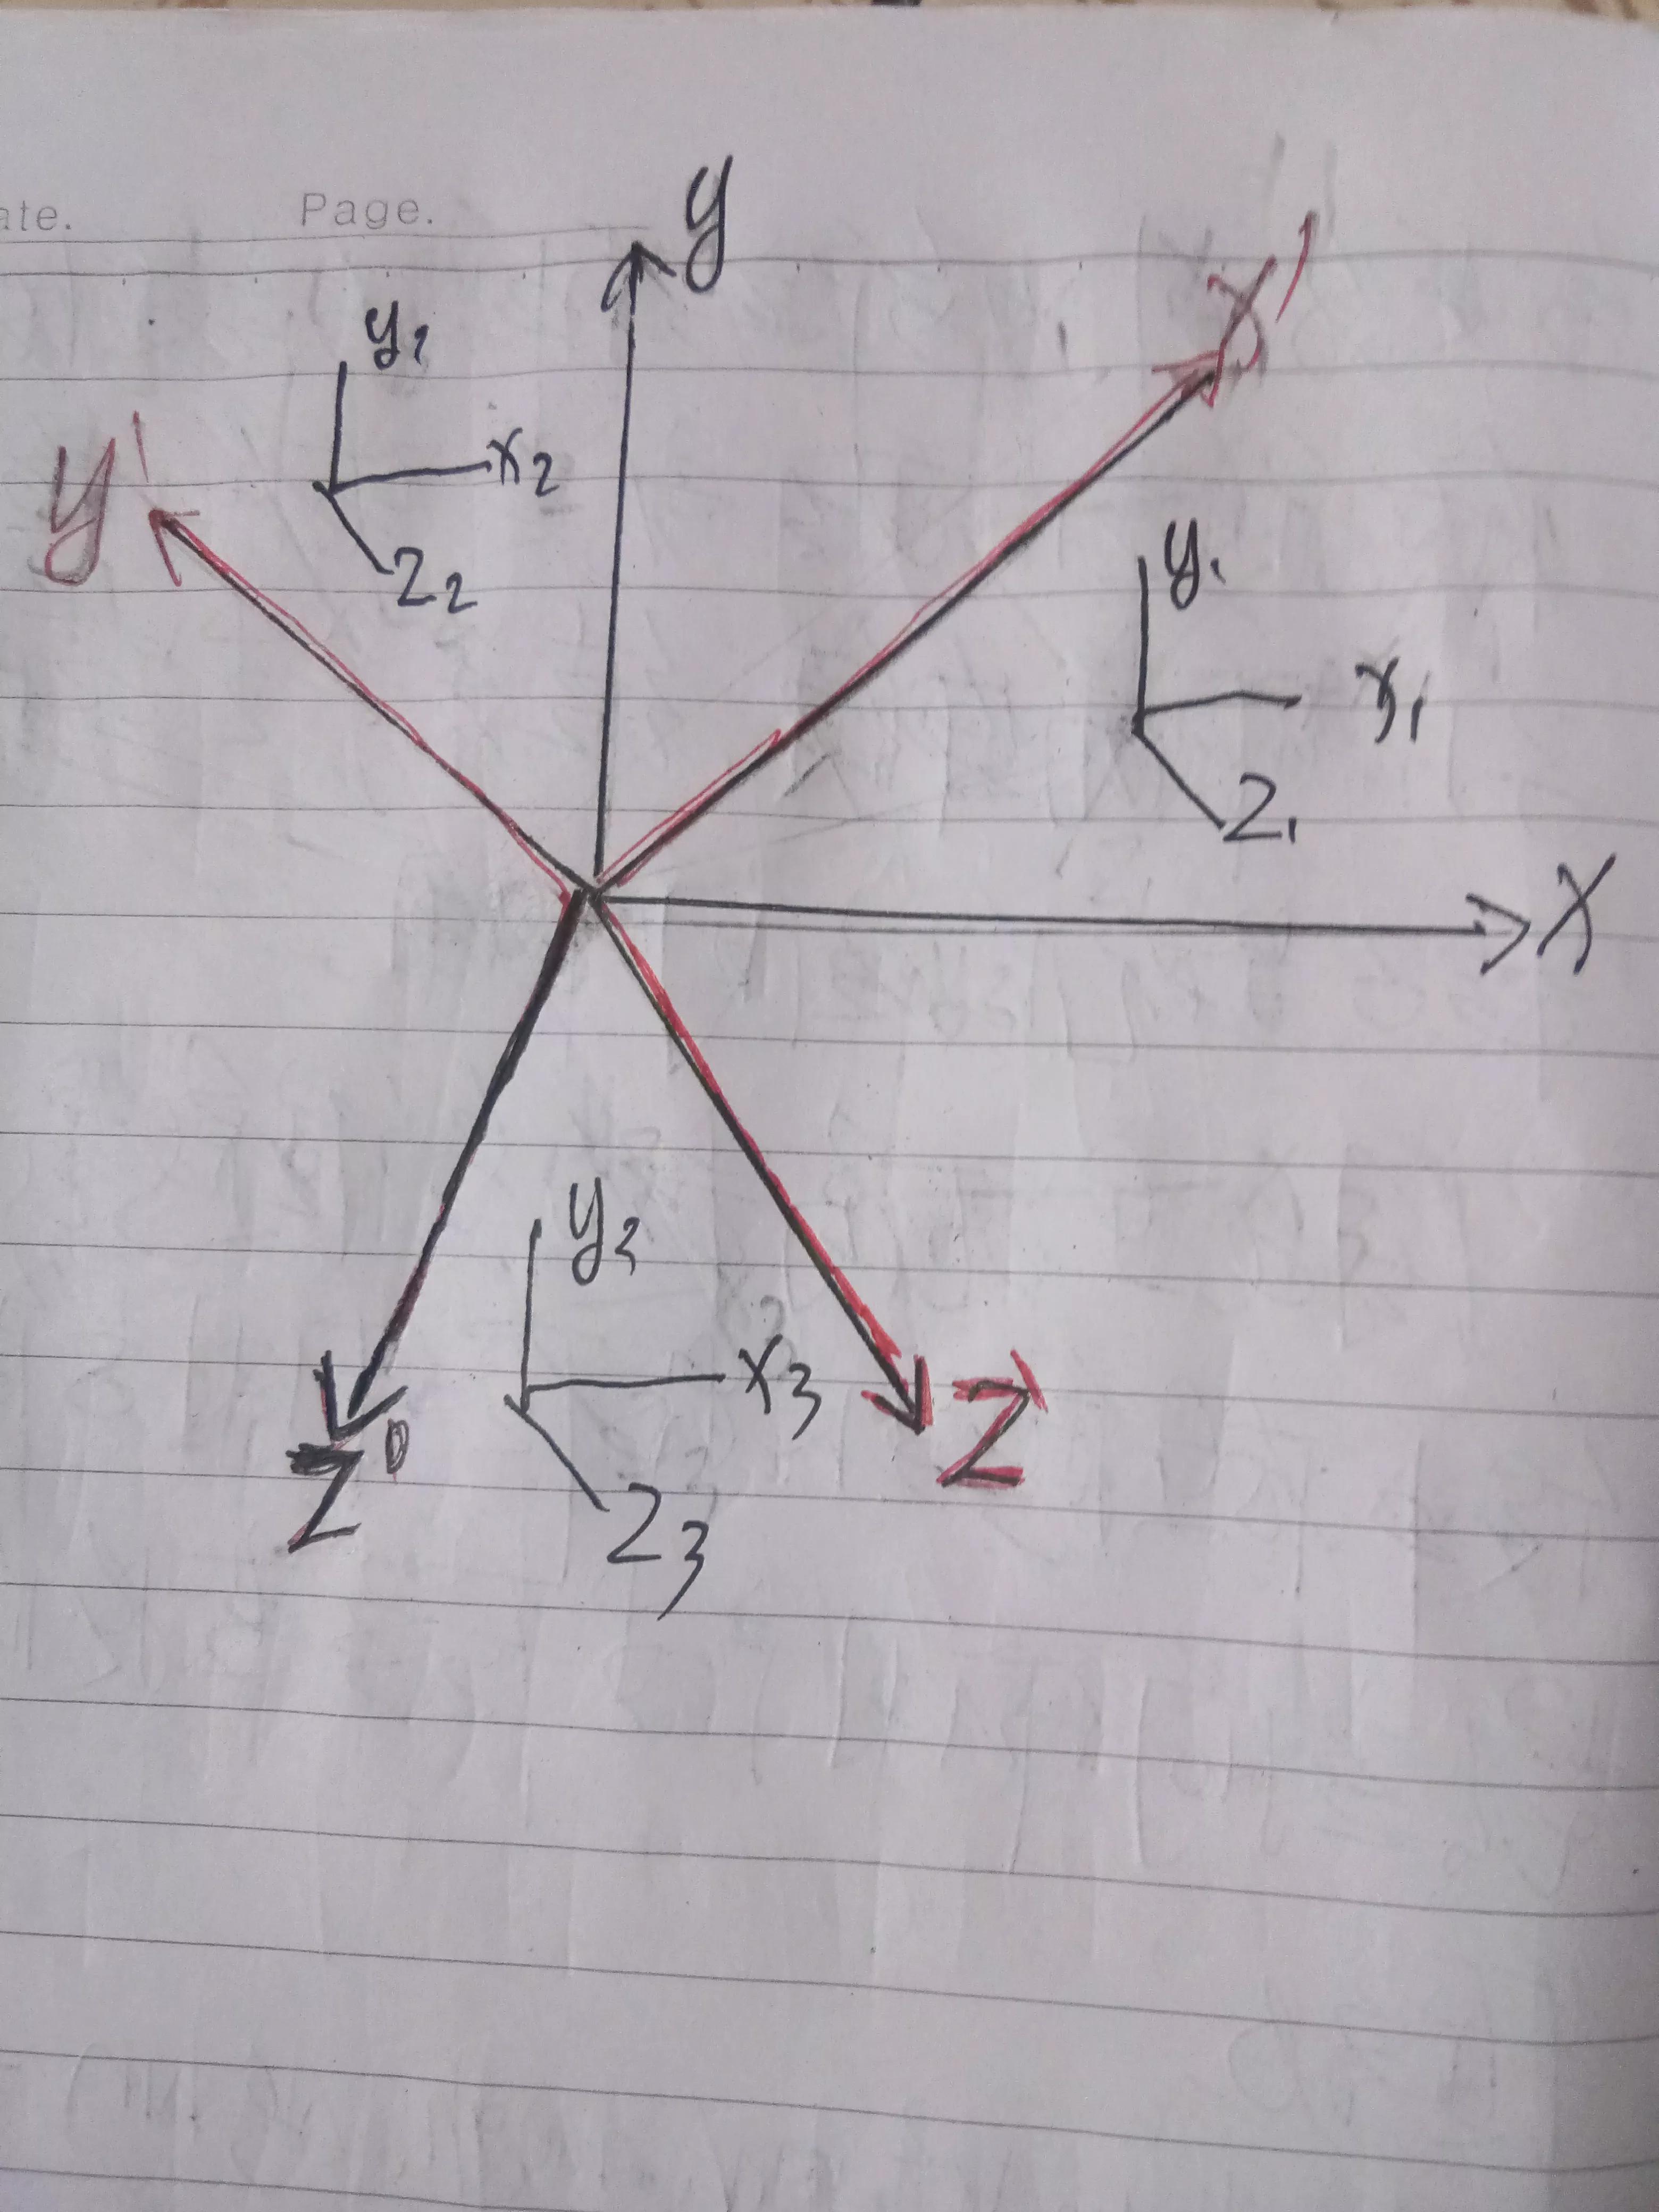 ate. Page.
y
X'
y1
y'
x2
Z2
y1
x1
Z1
X
y3
x3
Z'
Z
Z3